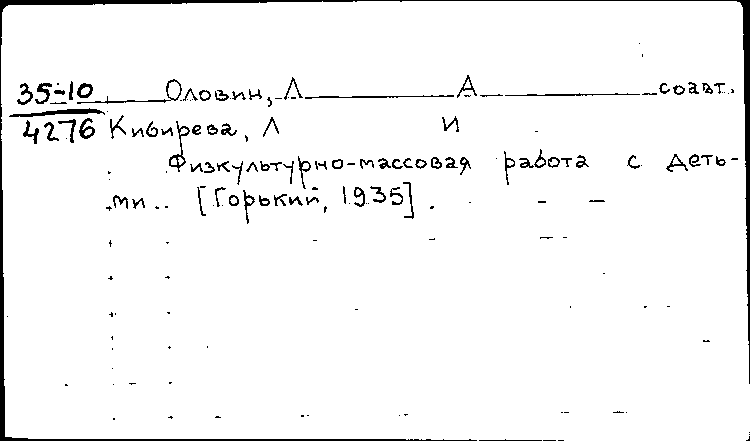 35-10 Оловин, Л А соавт.
4276 Кибирева, Л И
Физкультурно-массовая работа с деть-
ми.. [Горький, 1935].